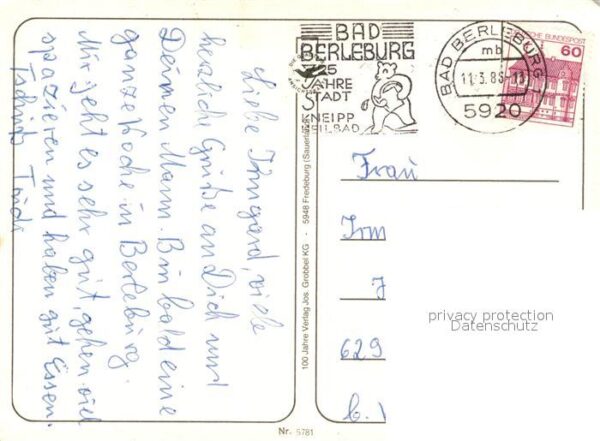 Liebe Irmgard, viele
herzliche Grüße an Dich und
Deinen Mann. Bin bald eine
ganze Woche in Berleburg.
Mir geht es sehr gut, gehen viel
spazieren und haben gut Essen.
Tschüß
100 Jahre Verlag Jos. Grobbel KG - 5948 Fredeburg (Sauerland)
Nr. 5781
BAD
BERLEBURG
725
JAHRE
STADT
KNEIPP
HEILBAD
BAD BERLEBURG 1
mb
11.3.86-13
5920
DEUTSCHE BUNDESPOST
60
Frau
Irm
J
629
privacy protection
Datenschutz